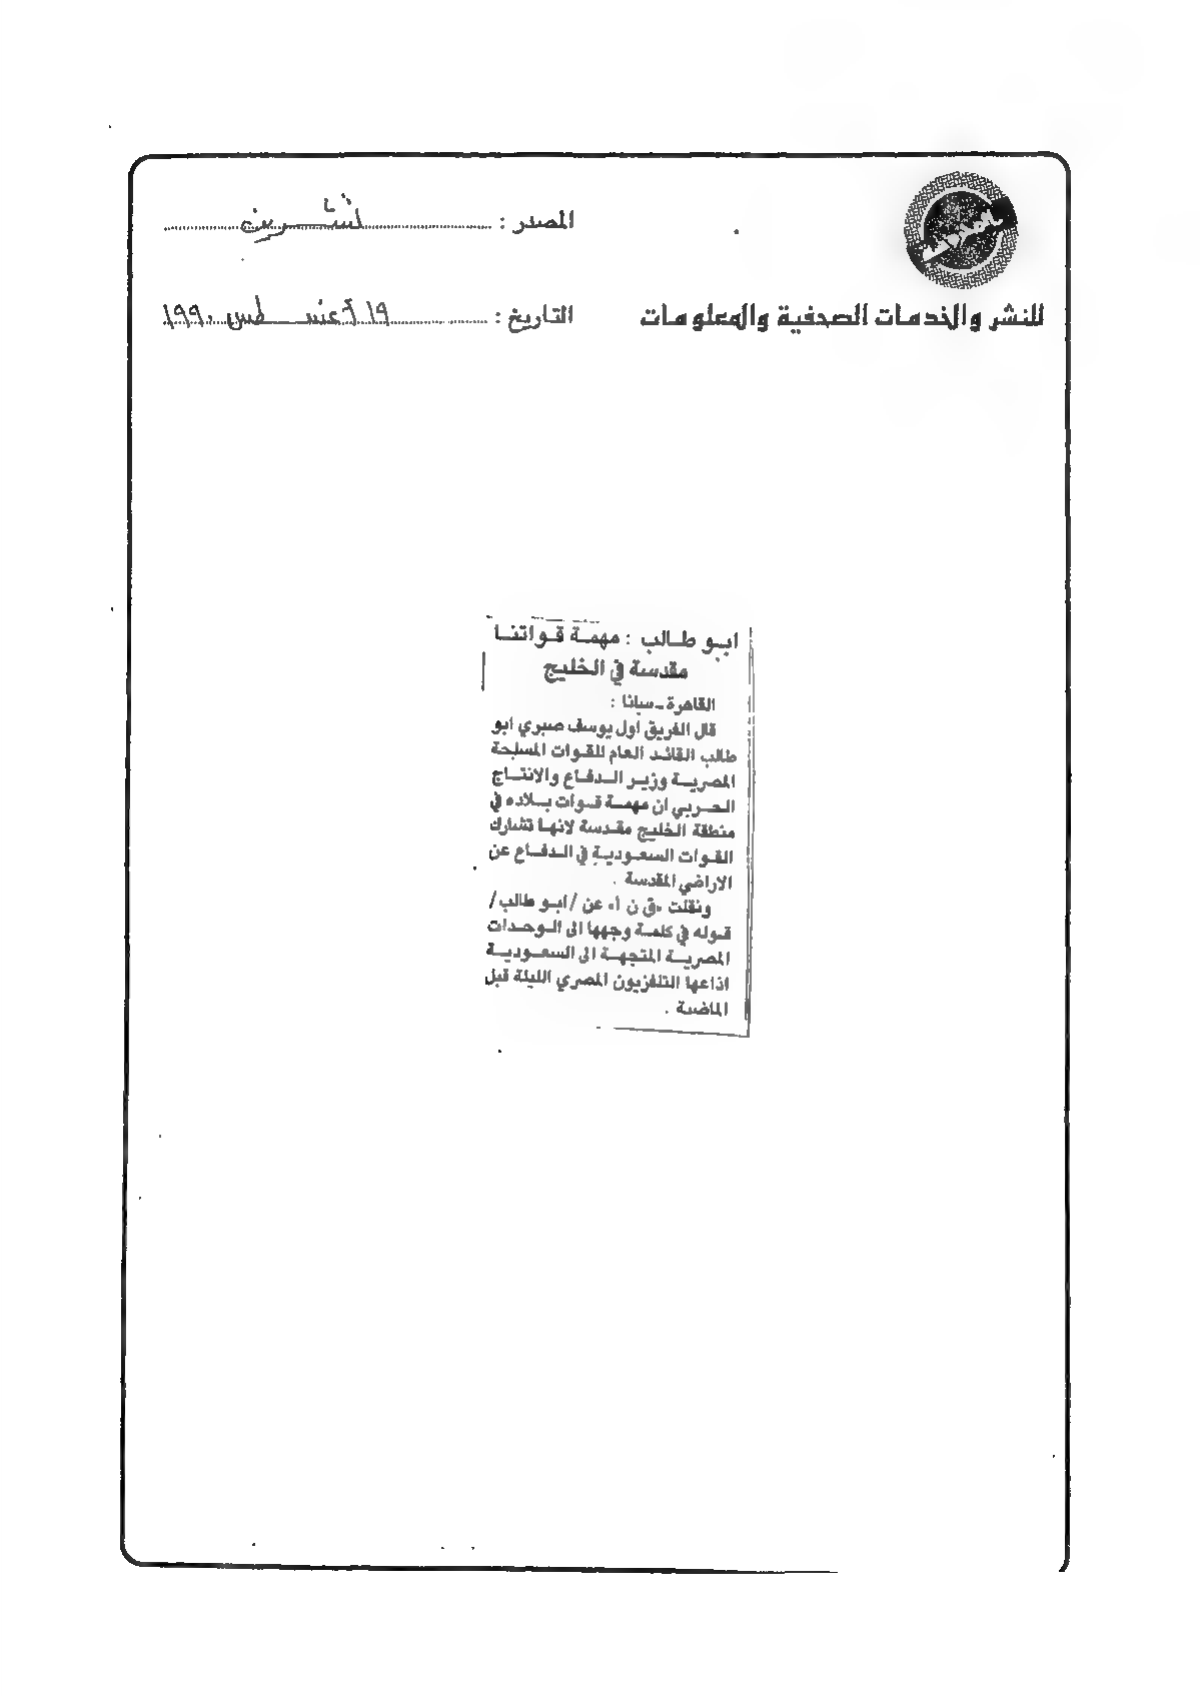 المصدر : تشرين
للنشر والخدمات الصحفية والمعلومات
التاريخ : ١٩ أغسطس ١٩٩٠
ابو طالب : مهمة قواتنا
مقدسة في الخليج
القاهرة ـ سانا :
قال الفريق اول يوسف صبري ابو
طالب القائد العام للقوات المسلحة
المصرية وزير الدفاع والانتاج
الحربي ان مهمة قوات بلاده في
منطقة الخليج مقدسة لانها تشارك
القوات السعودية في الدفاع عن
الاراضي المقدسة .
ونقلت «ق ن ا» عن /ابو طالب/
قوله في كلمة وجهها الى الوحدات
المصرية المتجهة الى السعودية
اذاعها التلفزيون المصري الليلة قبل
الماضية .